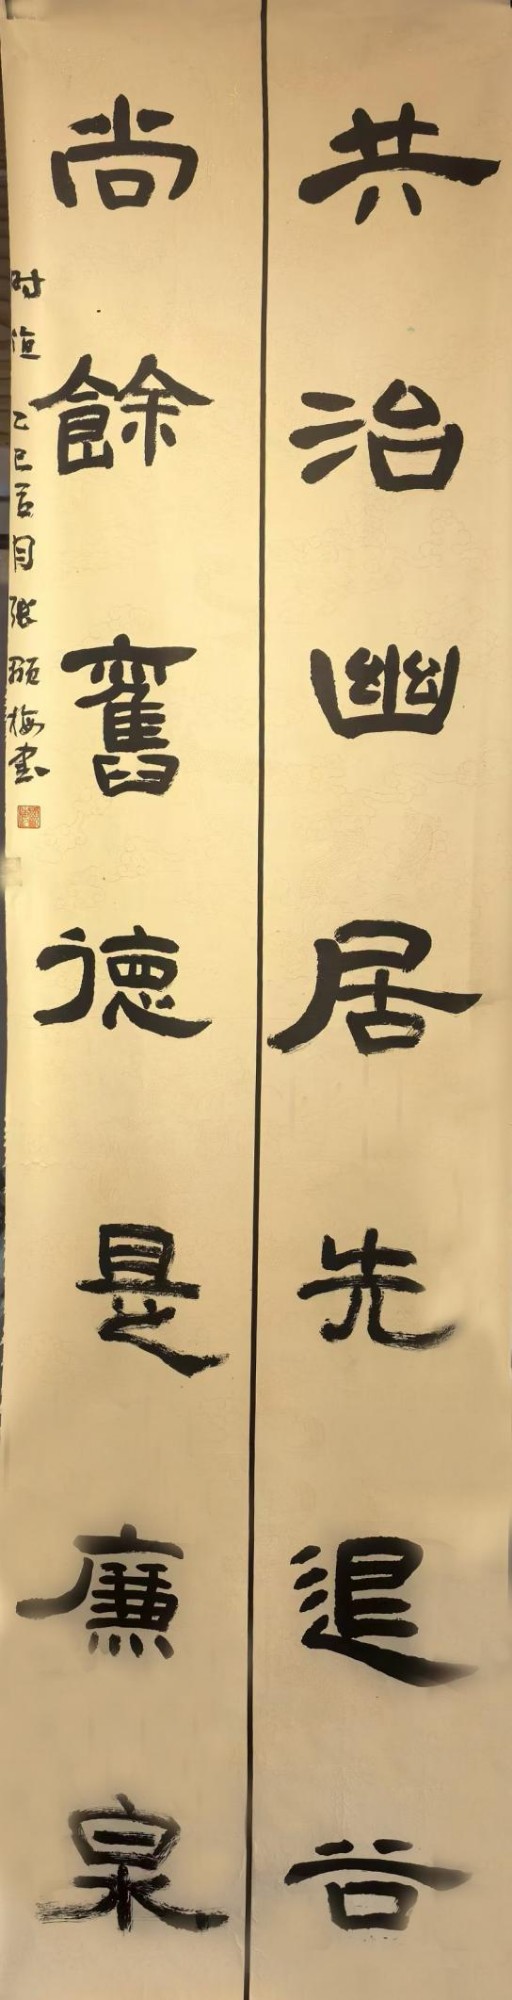 共治幽居先退谷
尚餘舊德是廉泉
时值乙巳百月張頤梅书